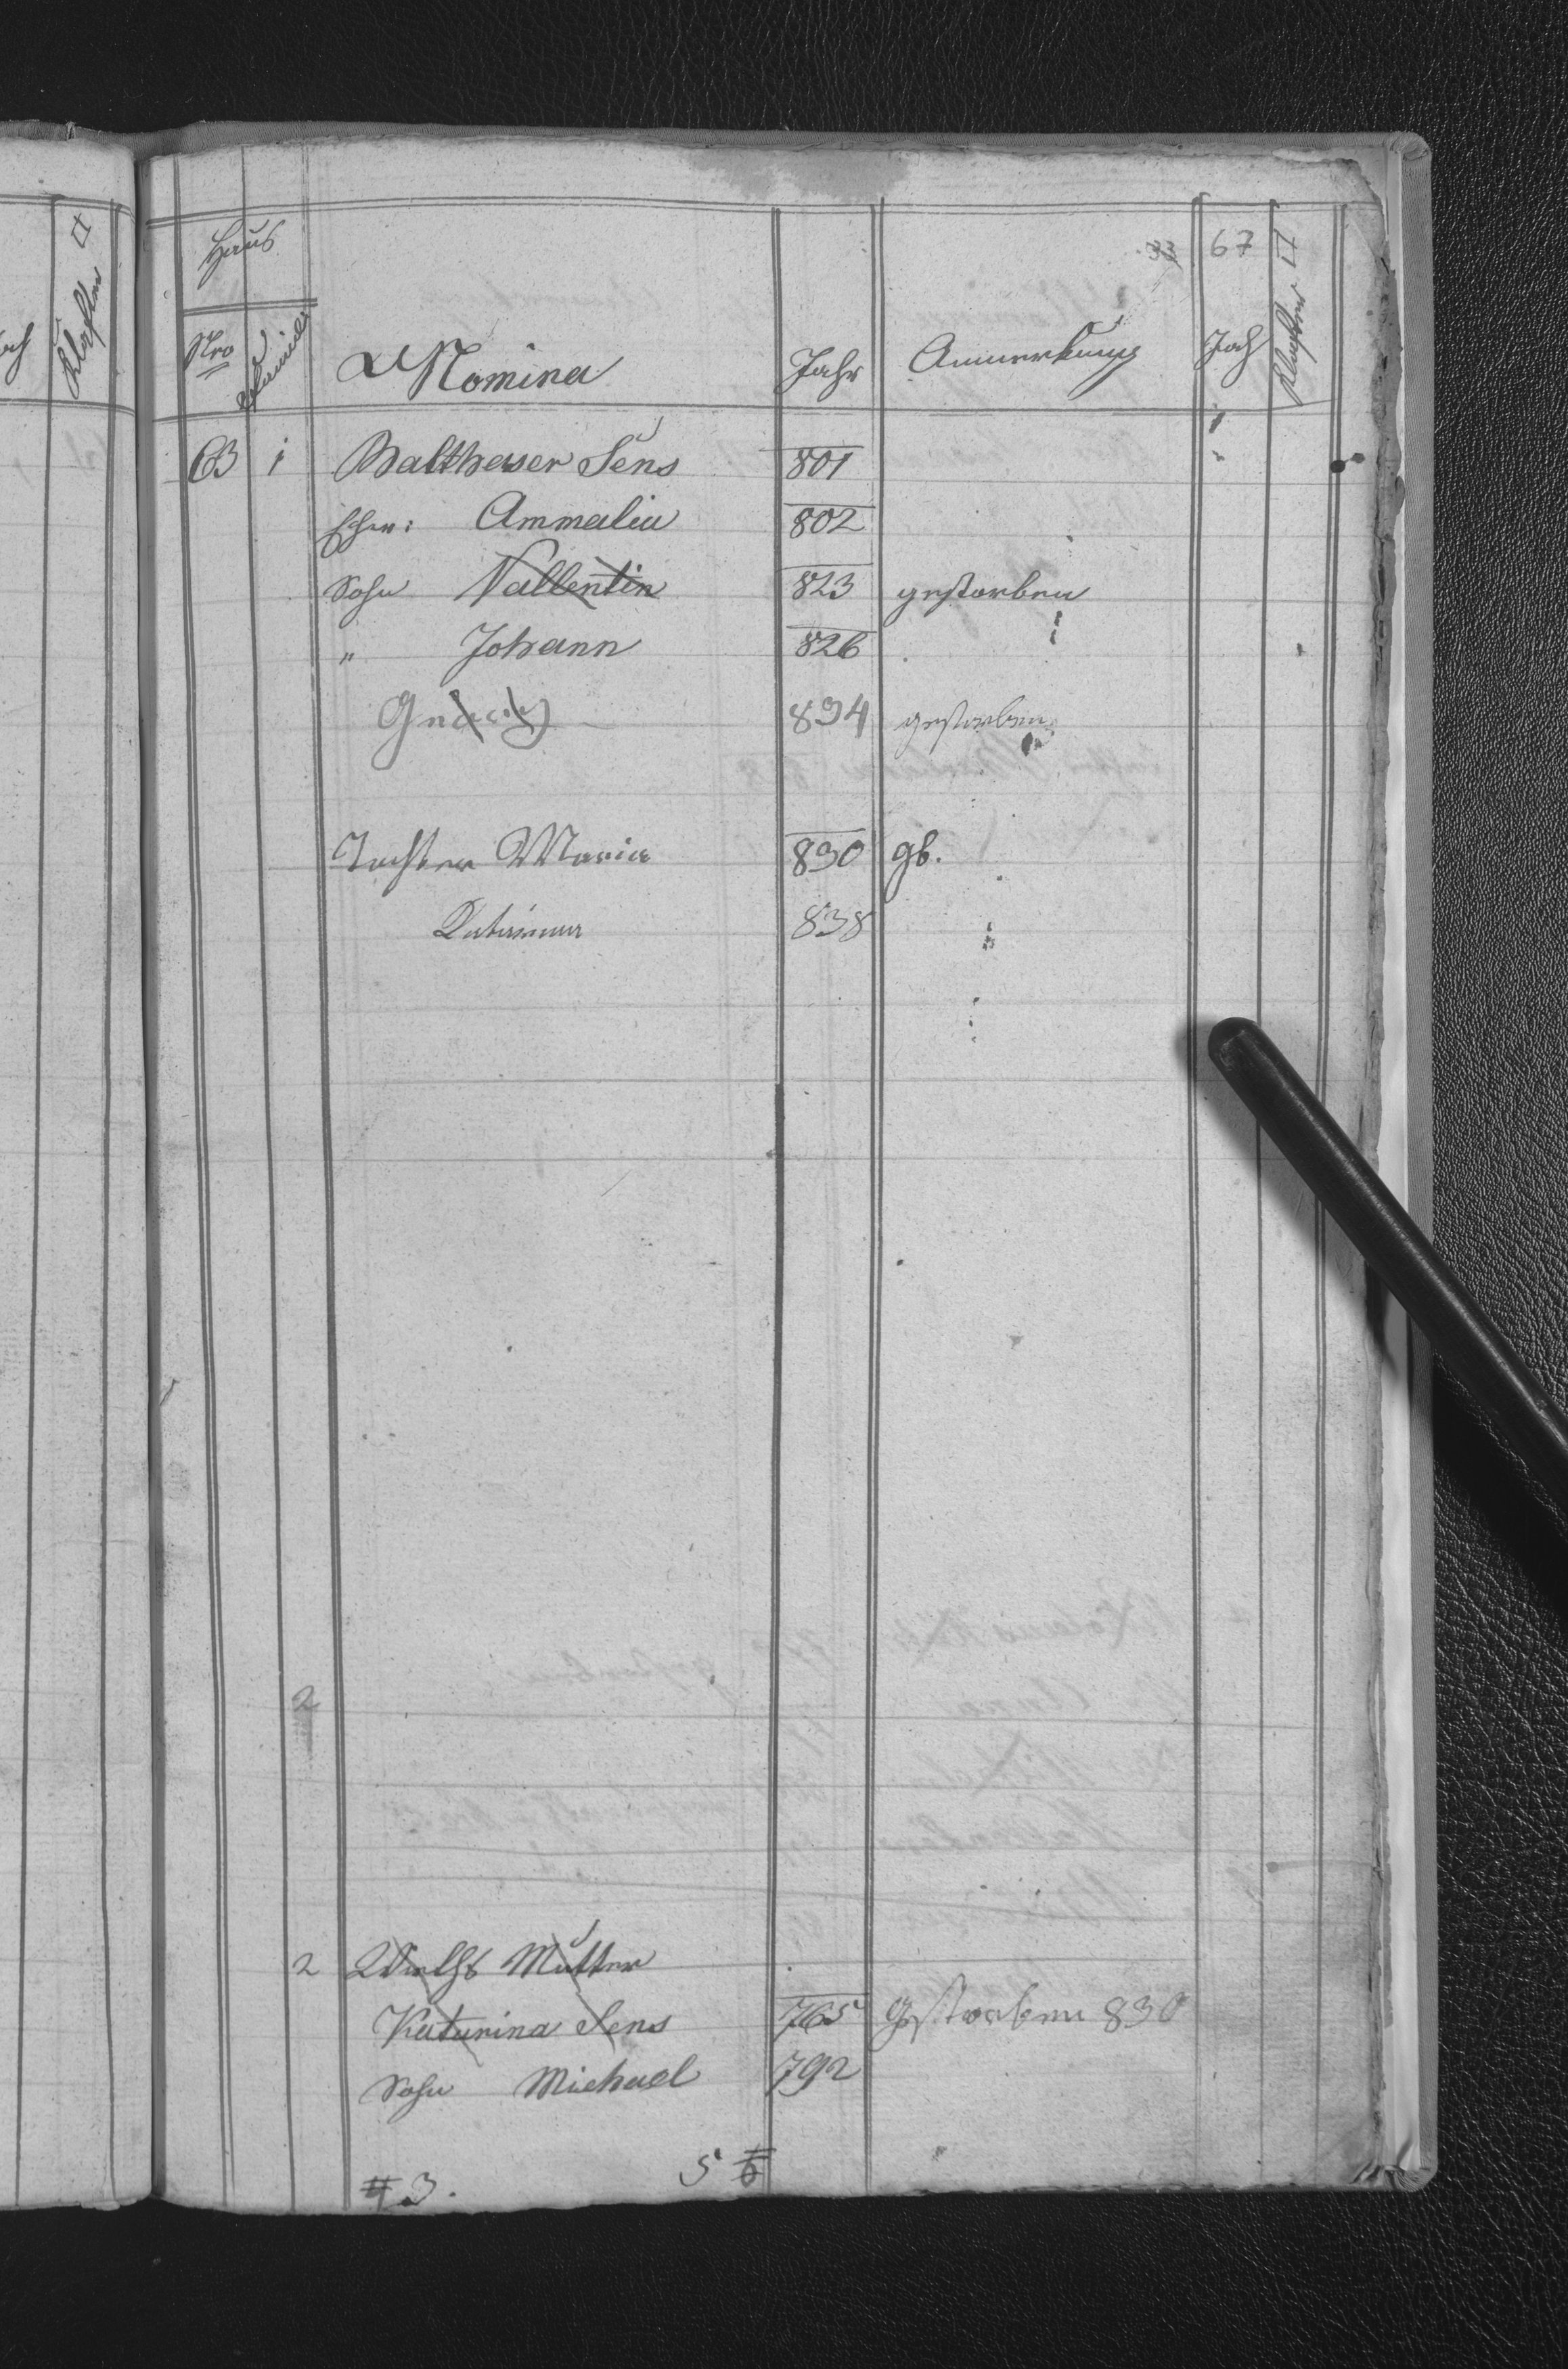 Haus
33 67
Nro Familie Nomina Jahr Anmerkung Joch Klafter
63 1 Balthaser Sens 801
Ehew: Ammalia 802
Sohn Vallentin 823 gestorben
" Johann 826
834 gestorben
Tochter Maria 830 gb.
Catarinna 838
2
2 Wirths Mutter
Katarina Sens 765 Gestorben 830
Sohn Michael 792
4 3. 5 6